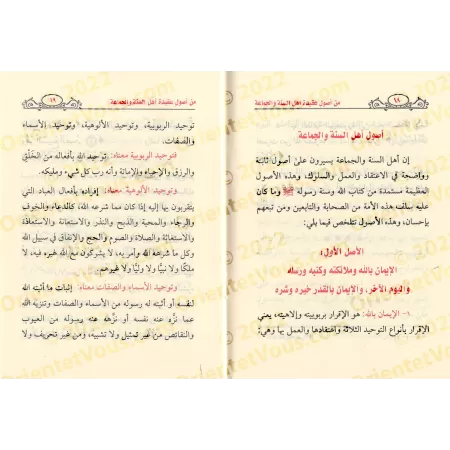 ١٨
من أصول عقيدة أهل السنة والجماعة
أصول أهل السنة والجماعة
إن أهل السنة والجماعة يسيرون على أصول ثابتة
وواضحة في الاعتقاد والعمل والسلوك، وهذه الأصول
العظيمة مستمدة من كتاب الله وسنة رسوله ﷺ وما كان
عليه سلف هذه الأمة من الصحابة والتابعين ومن تبعهم
بإحسان، وهذه الأصول تتلخص فيما يلي:
الأصل الأول:
الإيمان بالله وملائكته وكتبه ورسله
واليوم الآخر، والإيمان بالقدر خيره وشره
١- الإيمان بالله: هو الإقرار بربوبيته وإلاهيته، يعني
الإقرار بأنواع التوحيد الثلاثة واعتقادها والعمل بها وهي:
من أصول عقيدة أهل السنة والجماعة
١٩
توحيد الربوبية، وتوحيد الألوهية، وتوحيد الأسماء
والصفات.
فتوحيد الربوبية معناه: توحيد الله بأفعاله من الخلق
والرزق والإحياء والإماتة وأنه رب كل شيء ومليكه.
وتوحيد الألوهية معناه: إفراده بأفعال العباد التي
يتقربون بها إليه إذا كان مما شرعه الله، كالدعاء والخوف
والرجاء والمحبة والذبح والنذر والاستعانة والاستعاذة
والاستغاثة والصلاة والصوم والحج والإنفاق في سبيل الله
وكل ما شرعه الله وأمر به، لا يشركون مع الله غيره فيه، لا
ملكًا ولا نبيًّا ولا وليًّا ولا غيرهم.
وتوحيد الأسماء والصفات معناه: إثبات ما أثبته الله
لنفسه أو أثبته له رسوله من الأسماء والصفات وتنزيه الله
عما نزّه عنه نفسه أو نزّهه عنه رسوله من العيوب
والنقائص من غير تمثيل ولا تشبيه، ومن غير تحريف ولا
OrientetVous.com
2022